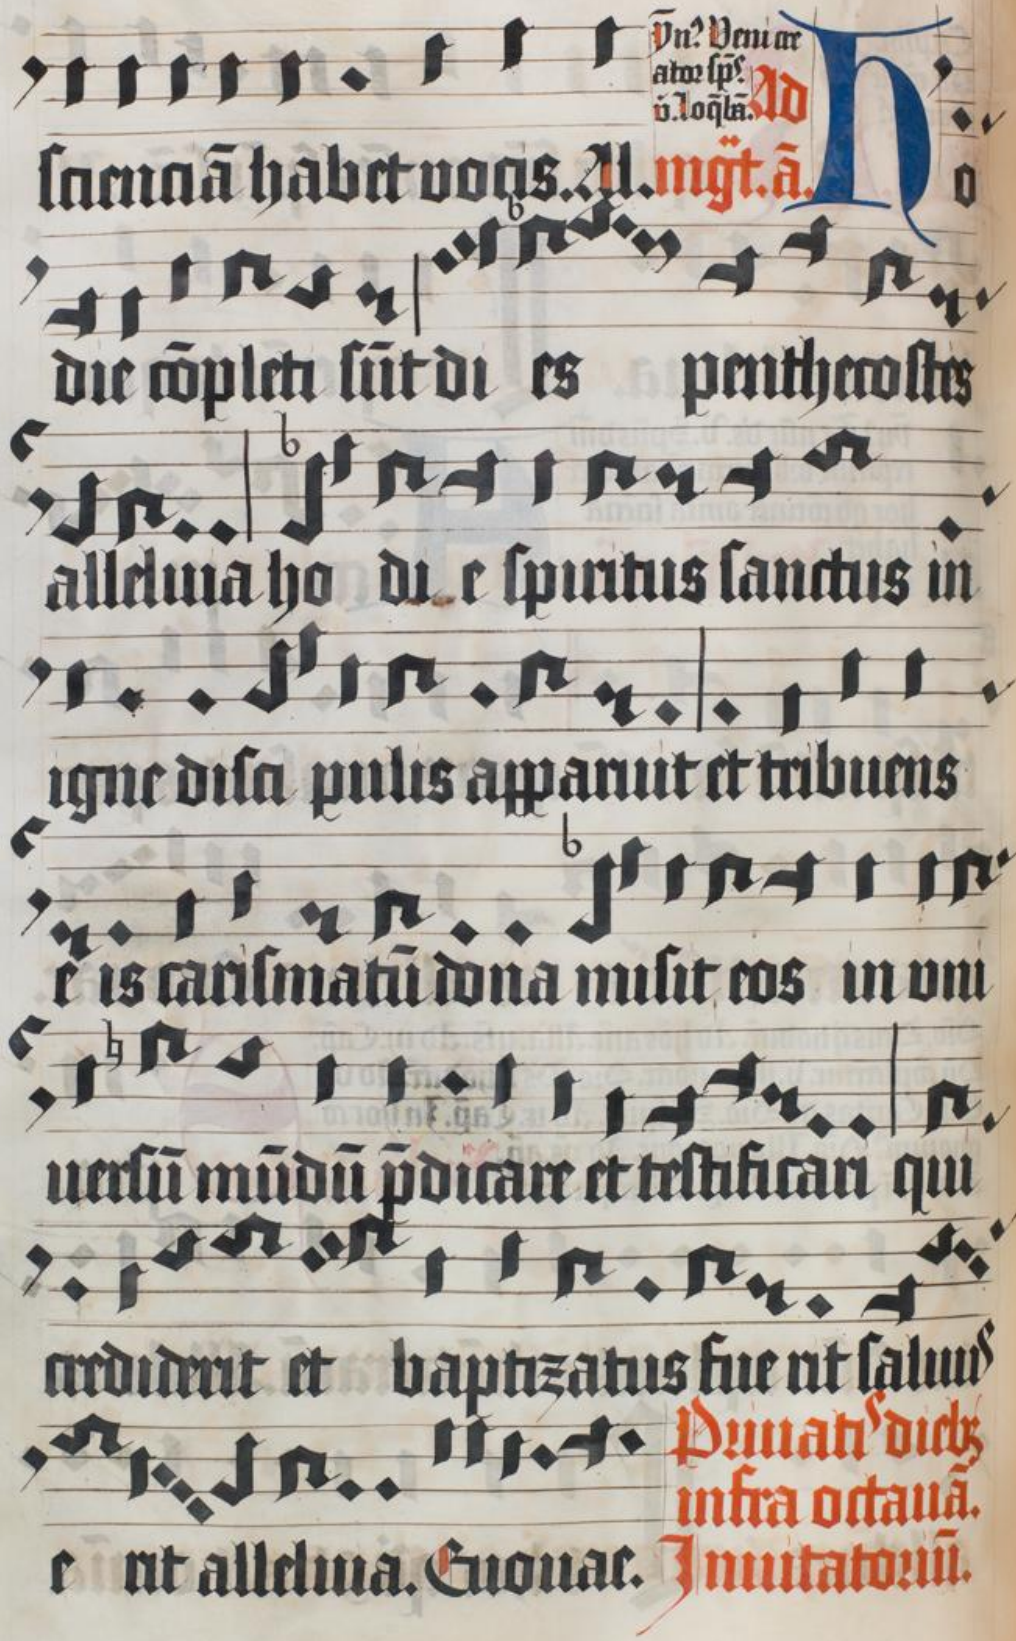 ȳn̄ꝰ Veni cre
ator sp̄s.
v̄. loq̄bā. Ad
scienciā habet vocis. Al. mḡt. ā. Ho
die cōpleti sūt di es penthecostes
alleluia ho di e spiritus sanctus in
igne disci pulis apparuit et tribuens
e is carismatū dona misit eos in vni
uersū mūdū p̄dicare et testificari qui
crediderit et baptizatus fue rit saluus
Priuatis diebꝫ
infra octauā.
e rit alleluia. Euouae. Inuitatoriū.